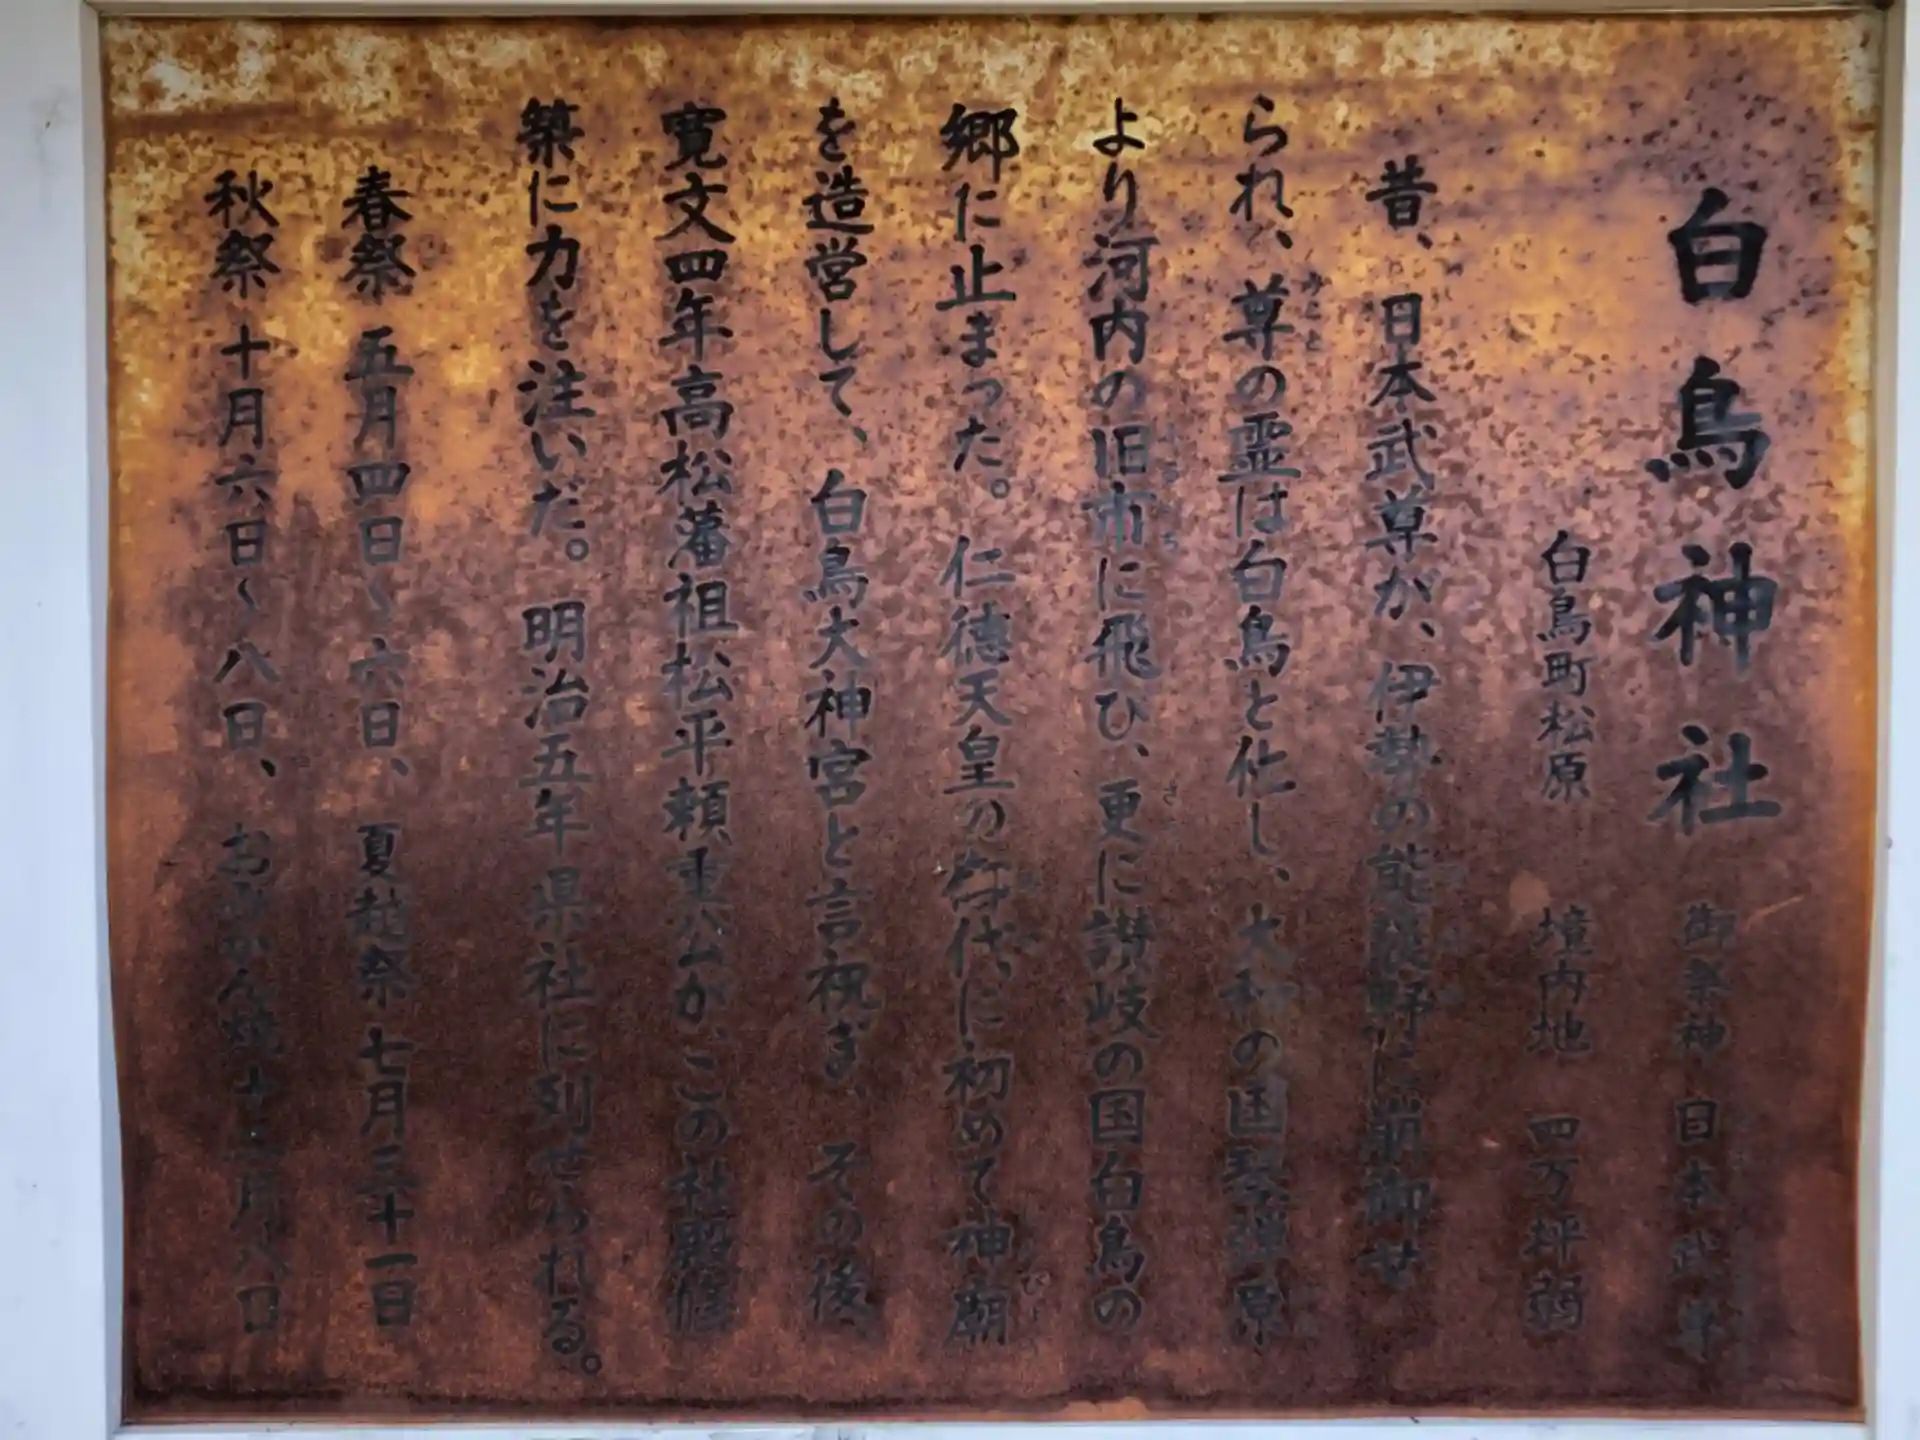 白鳥神社 御祭神 日本武尊
白鳥町松原 境内地 四万坪弱
昔、日本武尊が、伊勢の能褒野に崩御せ
られ、尊の霊は白鳥と化し、大和の国琴弾原
みこと
より河内の旧市に飛び、更に讃岐の国白鳥の
郷に止まった。仁徳天皇の御代に初めて神廟
を造営して、白鳥大神宮と言祝ぎ、その後、
寛文四年高松藩祖松平頼重公が、この社殿修
築に力を注いだ。明治五年県社に列せられる。
春祭 五月四日~六日、夏越祭 七月三十一日
秋祭 十月六日~八日、おみかん焼 十二月八日